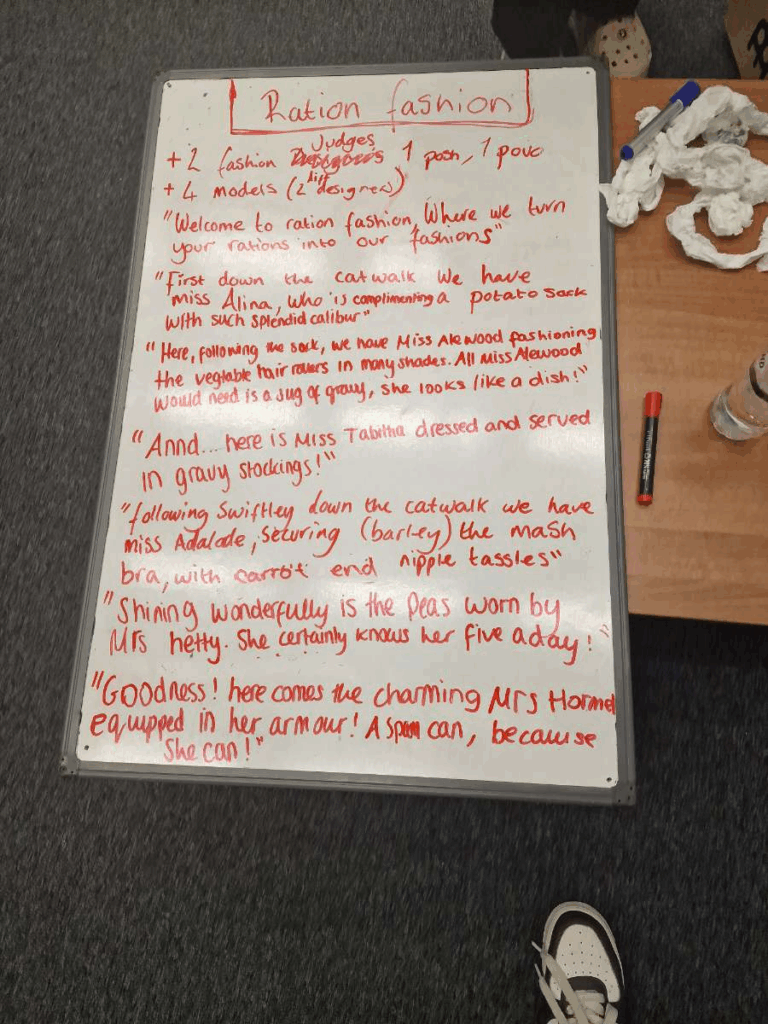 Ration fashion
Judges
+ 2 fashion Designers 1 posh, 1 povo
+ 4 models (2 diff designers)
"Welcome to ration fashion, Where we turn
your rations into our fashions"
"First down the catwalk We have
miss Alina, who is complimenting a potato sack
with such splendid calibur"
"Here, following the sack, we have Miss Alewood fashioning
the vegtable hair rollers in many shades. All Miss Alewood
would need is a jug of gravy, she looks like a dish!"
"Annd... here is Miss Tabitha dressed and served
in gravy stockings!"
"following Swiftley down the catwalk we have
miss Adalade, securing (barley) the mash
bra, with carrot end nipple tassles"
"Shining wonderfully is the Peas worn by
Mrs hetty. She certainly knows her five a day!"
"Goodness! here comes the charming Mrs Hormel
equipped in her armour! A spam can, because
She can!"